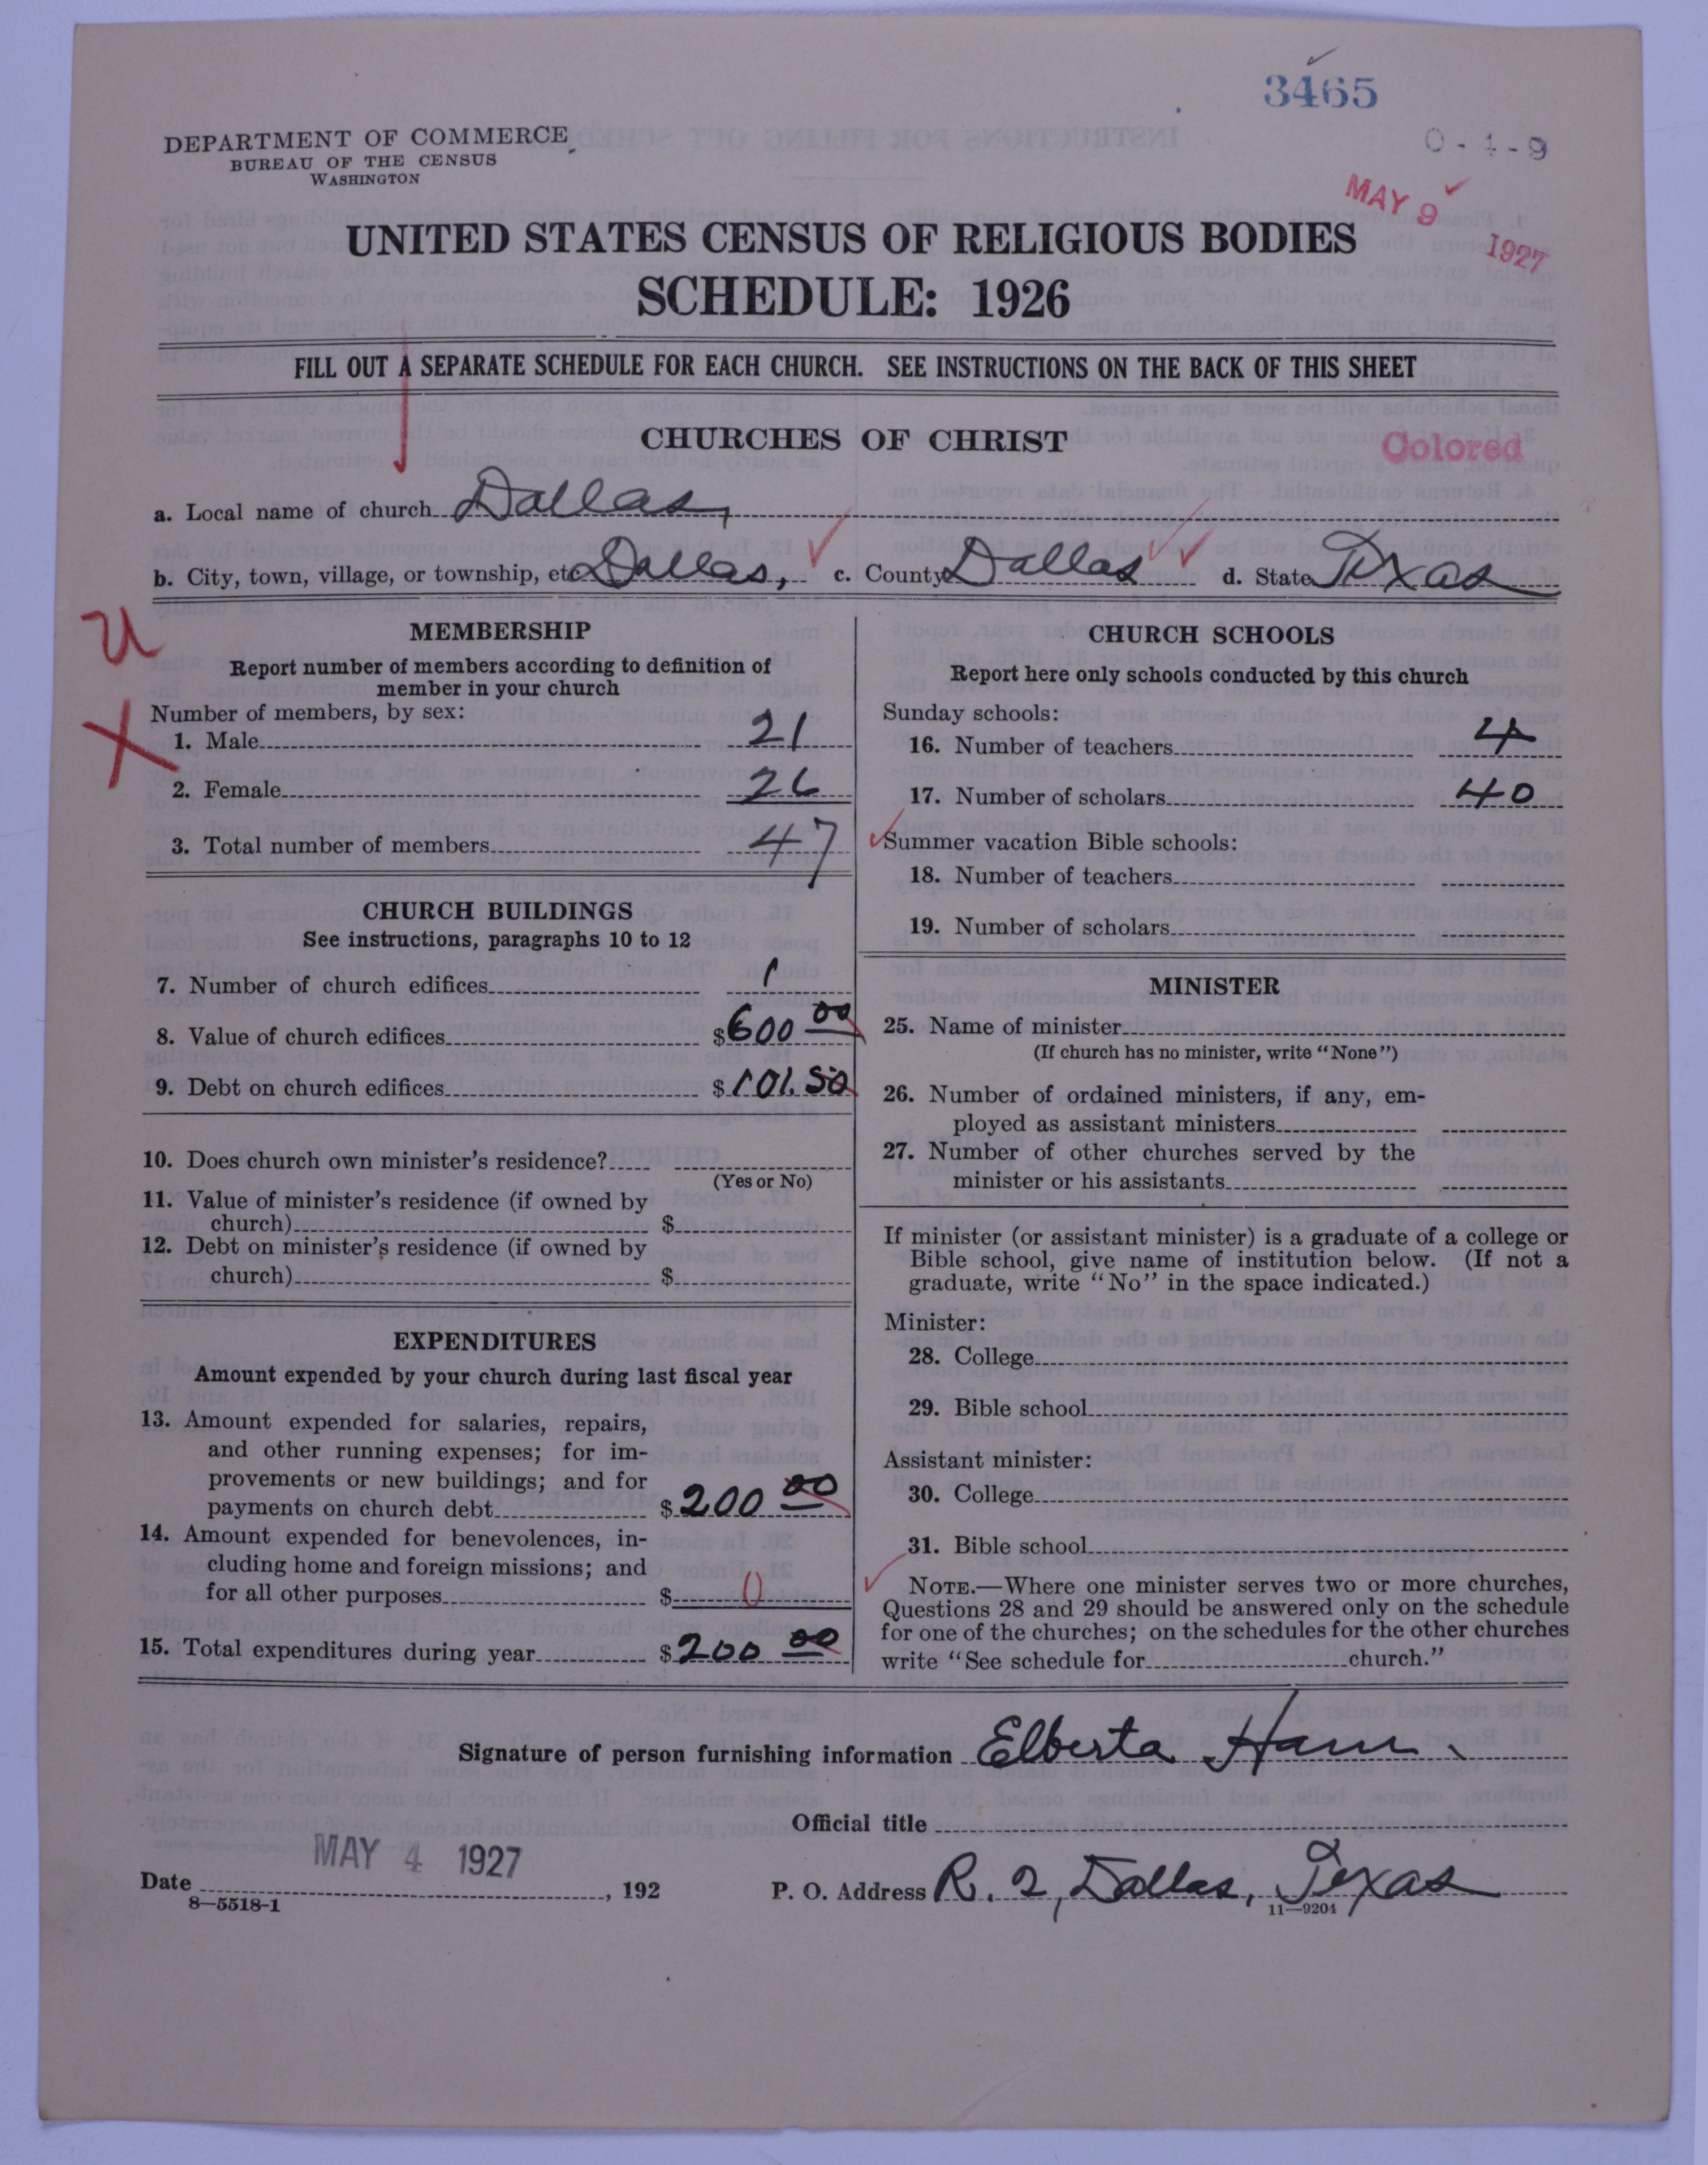 3465
0-4-9
MAY 9 1927
DEPARTMENT OF COMMERCE
BUREAU OF THE CENSUS
WASHINGTON
UNITED STATES CENSUS OF RELIGIOUS BODIES
SCHEDULE: 1926
FILL OUT A SEPARATE SCHEDULE FOR EACH CHURCH. SEE INSTRUCTIONS ON THE BACK OF THIS SHEET
CHURCHES OF CHRIST
Colored
a. Local name of church Dallas,
b. City, town, village, or township, etc. Dallas, c. County Dallas d. State Texas
U
X
MEMBERSHIP
Report number of members according to definition of
member in your church
Number of members, by sex:
1. Male 21
2. Female 26
3. Total number of members 47
CHURCH BUILDINGS
See instructions, paragraphs 10 to 12
7. Number of church edifices 1
8. Value of church edifices $600 00
9. Debt on church edifices $101.50
10. Does church own minister's residence?
(Yes or No)
11. Value of minister's residence (if owned by
church) $
12. Debt on minister's residence (if owned by
church) $
EXPENDITURES
Amount expended by your church during last fiscal year
13. Amount expended for salaries, repairs,
and other running expenses; for im-
provements or new buildings; and for
payments on church debt $200 00
14. Amount expended for benevolences, in-
cluding home and foreign missions; and
for all other purposes $0
15. Total expenditures during year $200 00
CHURCH SCHOOLS
Report here only schools conducted by this church
Sunday schools:
16. Number of teachers 4
17. Number of scholars 40
Summer vacation Bible schools:
18. Number of teachers
19. Number of scholars
MINISTER
25. Name of minister
(If church has no minister, write "None")
26. Number of ordained ministers, if any, em-
ployed as assistant ministers
27. Number of other churches served by the
minister or his assistants
If minister (or assistant minister) is a graduate of a college or
Bible school, give name of institution below. (If not a
graduate, write "No" in the space indicated.)
Minister:
28. College
29. Bible school
Assistant minister:
30. College
31. Bible school
NOTE.—Where one minister serves two or more churches,
Questions 28 and 29 should be answered only on the schedule
for one of the churches; on the schedules for the other churches
write "See schedule for church."
Signature of person furnishing information Elberta Ham.
Official title
MAY 4 1927
Date , 192 P. O. Address R. 2, Dallas, Texas
8—5518-1
11—9204